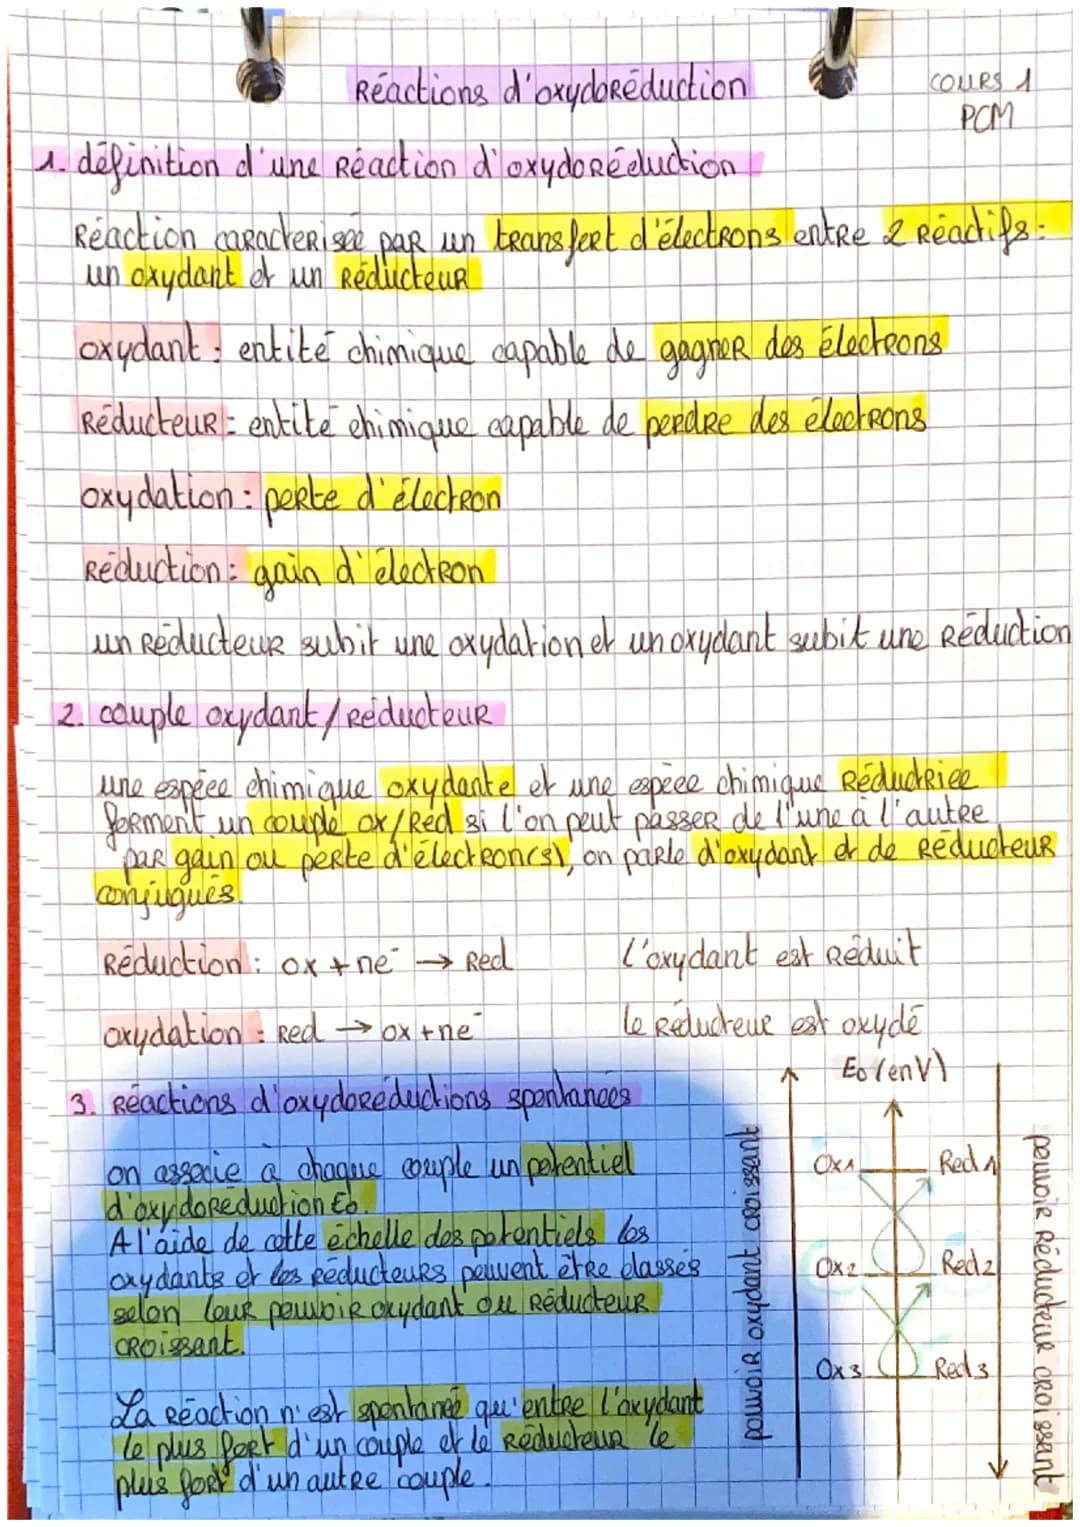 Réactions d'oxydoréduction
COURS 1
PCM
1. définition d'une Réaction d'oxydoréduction
Réaction caractérisée par un transfert d'électrons entre 2 Réactifs :
un oxydant et un Réducteur
oxydant : entité chimique capable de gagner des électrons
Réducteur : entité chimique capable de perdre des électrons
oxydation : perte d'électron
Réduction : gain d'électron
un Réducteur subit une oxydation et un oxydant subit une Réduction
2. couple oxydant / Réducteur
une espèce chimique oxydante et une espèce chimique Réductrice
forment un couple ox/Red si l'on peut passer de l'une à l'autre
par gain ou perte d'électron(s), on parle d'oxydant et de Réducteur
conjugués.
Réduction : ox + ne⁻ → Red l'oxydant est Réduit
oxydation : Red → ox + ne⁻ le Réducteur est oxydé
3. Réactions d'oxydoréductions spontanées
on associe à chaque couple un potentiel
d'oxydoréduction E0.
A l'aide de cette échelle des potentiels los
oxydants et les Réducteurs peuvent être classés
selon leur pouvoir oxydant ou Réducteur
croissant.
La Réaction n'est spontanée qu'entre l'oxydant
le plus fort d'un couple et le Réducteur le
plus fort d'un autre couple.
E0 (en V)
pouvoir oxydant croissant
Ox1 Red1
Ox2 Red2
Ox3 Red3
pouvoir Réducteur croissant